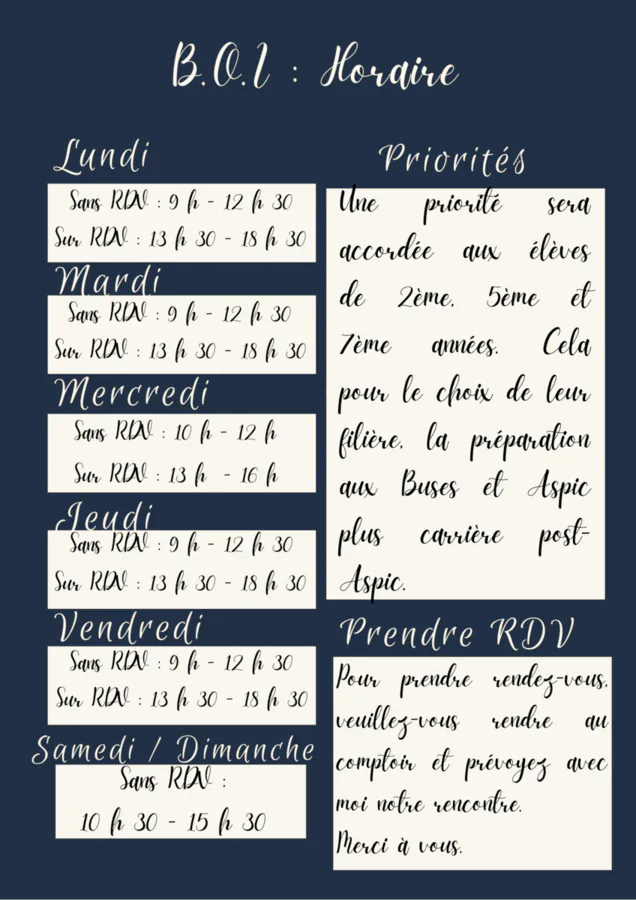 B.O.I : Horaire
Lundi
Sans RDV : 9 h - 12 h 30
Sur RDV : 13 h 30 - 18 h 30
Mardi
Sans RDV : 9 h - 12 h 30
Sur RDV : 13 h 30 - 18 h 30
Mercredi
Sans RDV : 10 h - 12 h
Sur RDV : 13 h - 16 h
Jeudi
Sans RDV : 9 h - 12 h 30
Sur RDV : 13 h 30 - 18 h 30
Vendredi
Sans RDV : 9 h - 12 h 30
Sur RDV : 13 h 30 - 18 h 30
Samedi / Dimanche
Sans RDV :
10 h 30 - 15 h 30
Priorités
Une priorité sera
accordée aux élèves
de 2ème, 5ème et
7ème années. Cela
pour le choix de leur
filière, la préparation
aux Buses et Aspic
plus carrière post-
Aspic.
Prendre RDV
Pour prendre rendez-vous,
veuillez-vous rendre au
comptoir et prévoyez avec
moi notre rencontre.
Merci à vous.